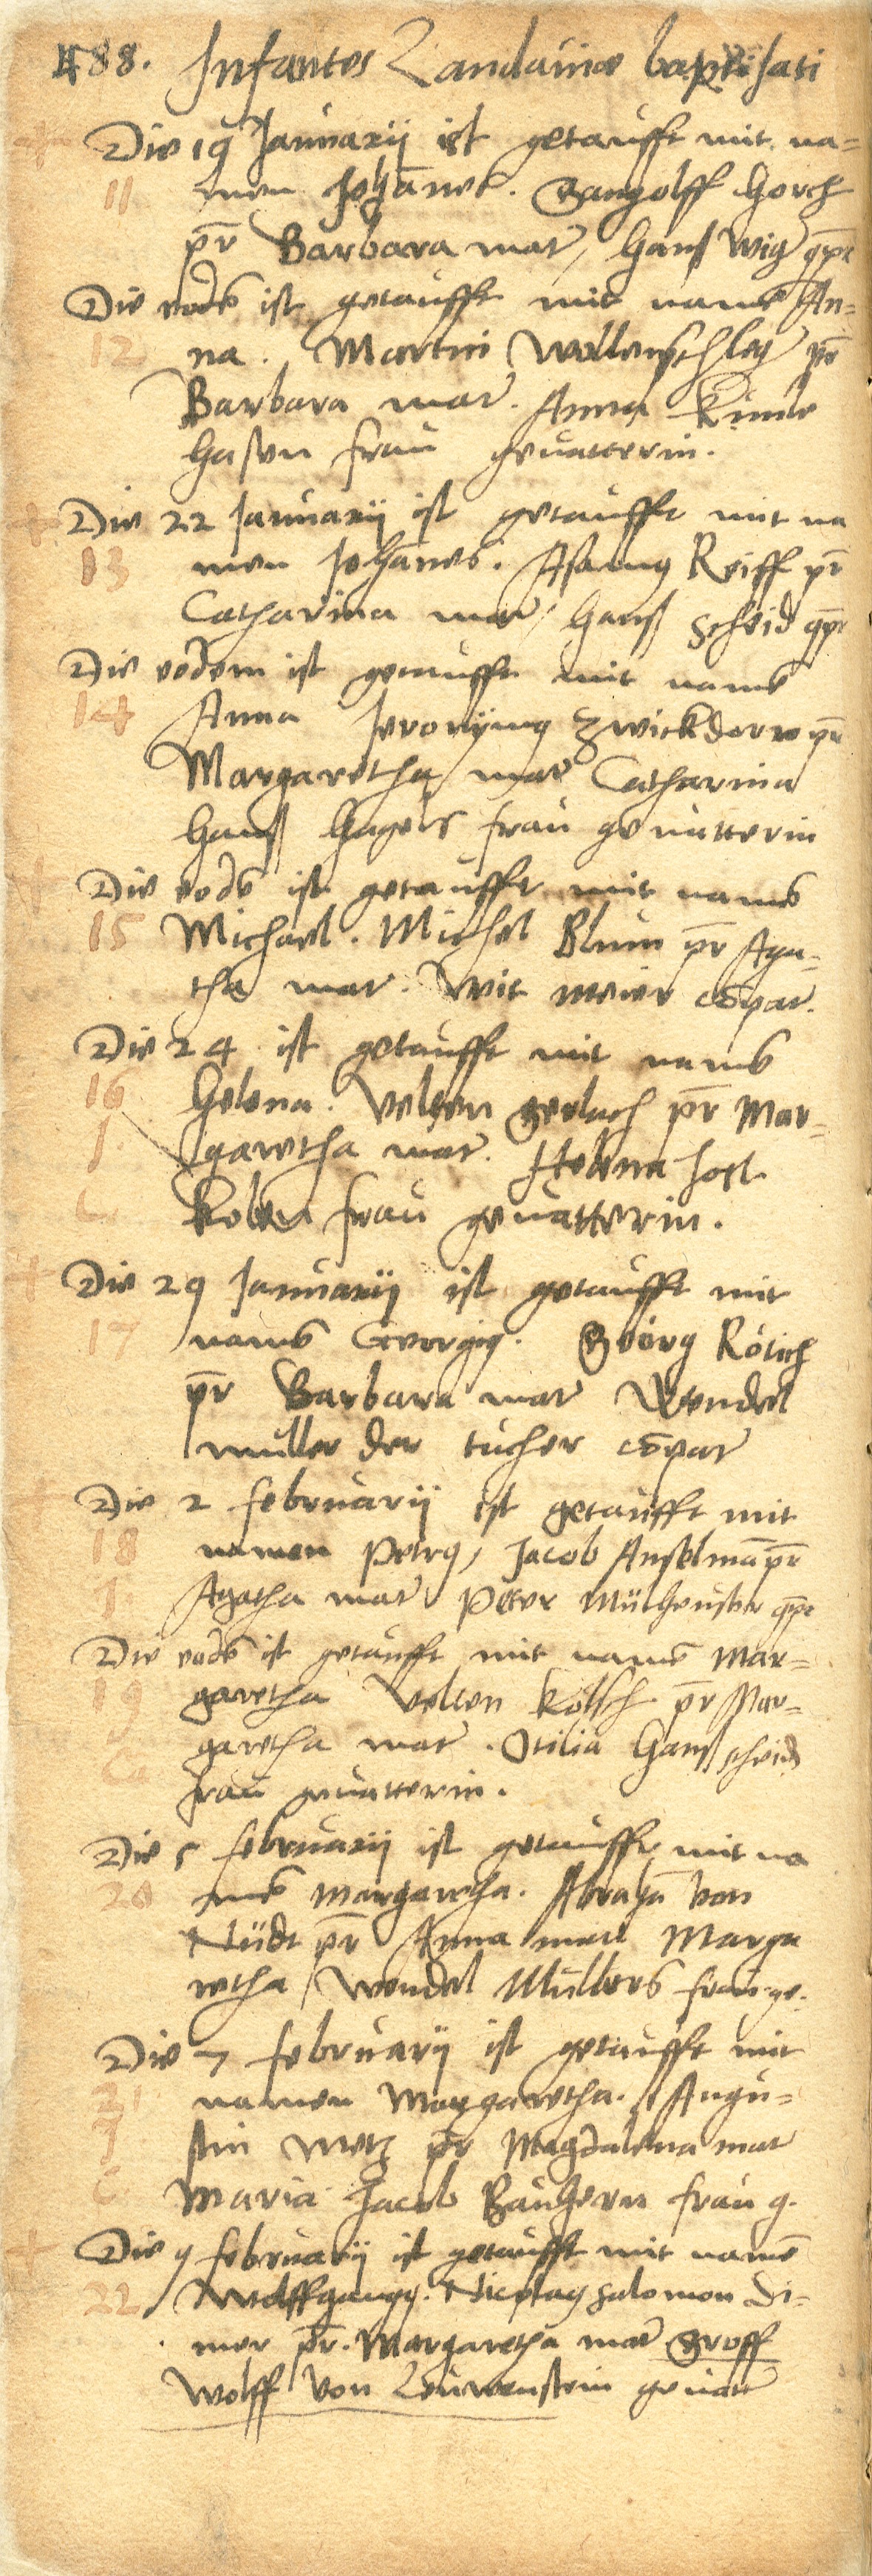 488. Infantes Landauiæ baptisati
Die 19 Januarij ist getaufft mit na=
11 men Johānes. Gangolff Horch
pr̄ Barbara mat̄, Hanß Wig
Die eodē ist getaufft mit namē An-
12 na. Martin Wollenschleg pr̄
Barbara mat̄. Anna
Hasen frau geuatterin.
Die 22 Januarij ist getaufft mit na
13 men Johānes. Asamus Reiff pr̄
Catharina mat̄, Hanß Scheid
Die eodem ist getaufft mit namē
14 Anna Jeronymus Zwickdorn pr̄
Margaretha mat̄ Catharina
Hanß Hagels frau geuatterin
Die eodē ist getaufft mit namē
15 Michael. Michel Blum pr̄ Aga-
tha mat. Veit Meier cōpat.
Die 24 ist getaufft mit namē
16 Helena. Velten Gerlach pr̄ Mar-
garetha mat. Helena Jost
Koben frau geuatterin.
Die 29 Januarij ist getaufft mit
17 namē Georgius. Georg Rötich
pr̄ Barbara mat̄ Wendel
müller der tucher cōpat̄
Die 2 februarij ist getaufft mit
18 namen Petrus, Jacob Anselmā pr̄
Agatha mat̄ Peter
Die eodē ist getaufft mit namē Mar=
19 garetha Velten Kölsch pr̄ Mar-
garetha mat̄. Otilia Hanß scheids
frau geuatterin.
Die 5 februarij ist getaufft mit na
20 mē Margaretha. Abrahā von
Nüdt pr̄ Anna mat̄ Marga
retha Wendel Müllers frau ge.
Die 7 februarij ist getaufft mit
21 namen Margaretha. Augu=
stin Metz pr̄ Magdalena mat̄
Maria Jacob Bauhern frau g.
Die 9 februarij ist getaufft mit namē
22 Wolffgangus. Nicolaus Salomon Di-
mer pr̄. Margaretha mat̄ Groff
Wolff von Leuwenstein geuatt̄